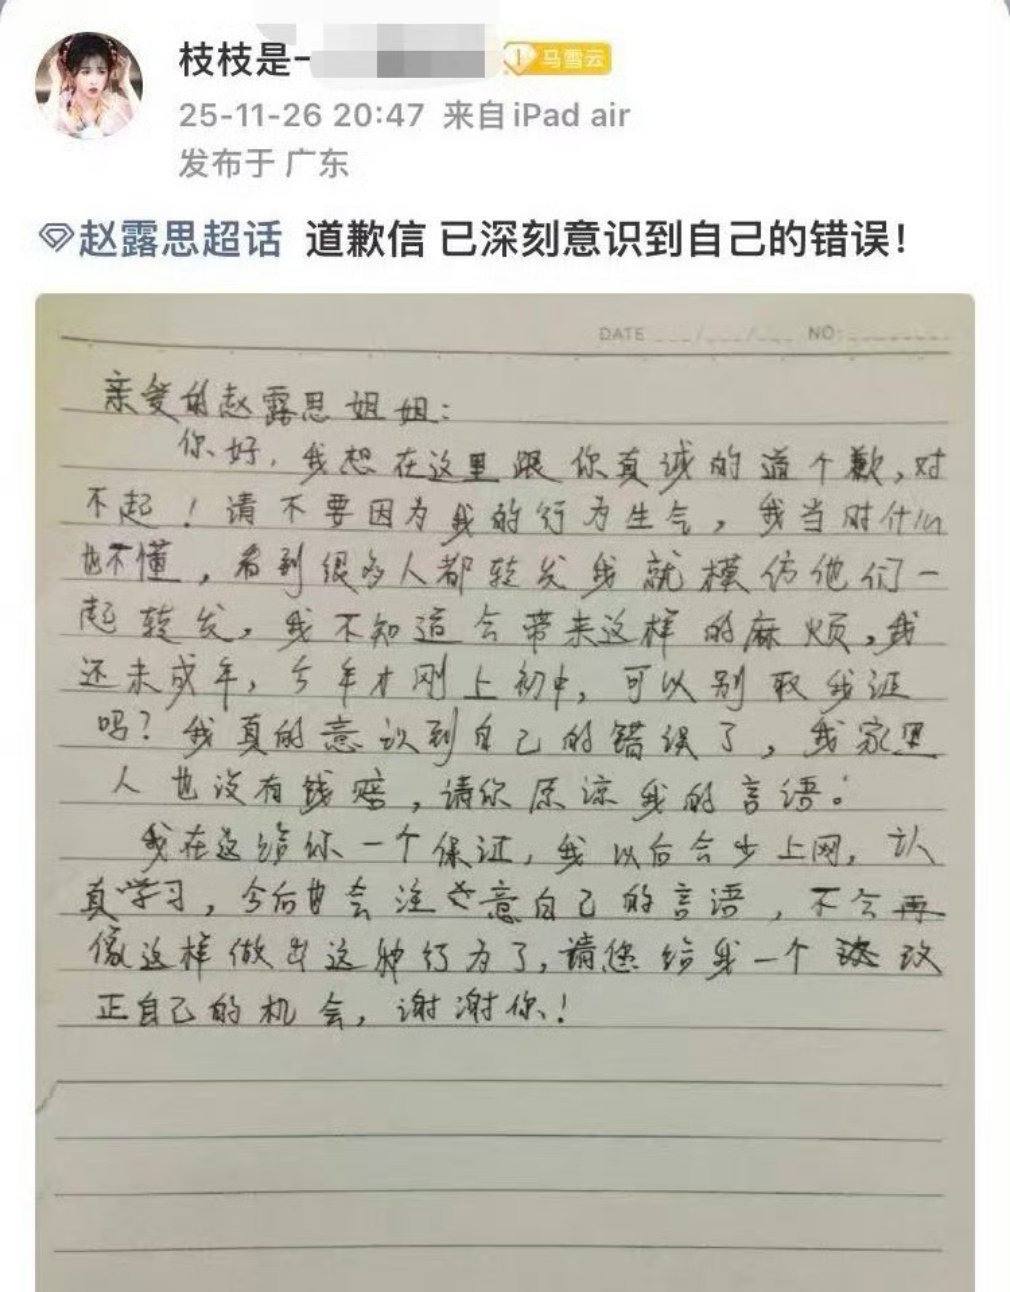 枝枝是一
马雪云
25-11-26 20:47 来自 iPad air
发布于 广东
赵露思超话 道歉信 已深刻意识到自己的错误!
DATE / / NO:
亲爱的赵露思姐姐:
你好,我想在这里跟你真诚的道个歉,对
不起!请不要因为我的行为生气,我当时什么
也不懂,看到很多人都转发我就模仿他们一
起转发,我不知道会带来这样的麻烦,我
还未成年,今年才刚上初中,可以别取我证
吗?我真的意识到自己的错误了,我家里
人也没有钱赔,请你原谅我的言语。
我在这给你一个保证,我以后会少上网,认
真学习,今后也会注意自己的言语,不会再
像这样做出这种行为了,请您给我一个改
正自己的机会,谢谢你!